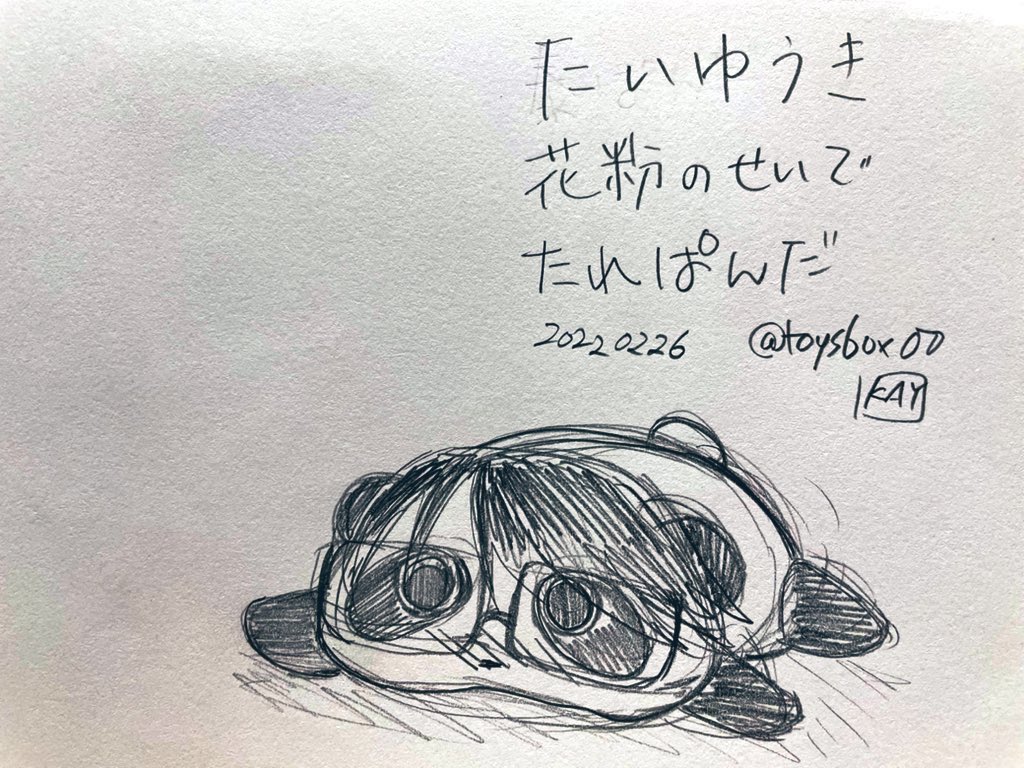 たいゆうき
花粉のせいで
たれぱんだ
20220226 @toysbox00
KAY